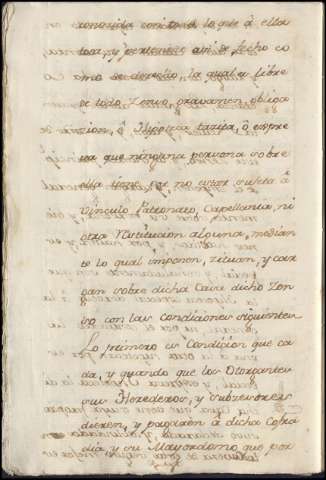 conocida con todo lo que à ella
toca, y pertenece asi de fecho co
mo de derecho, la qual es libre
de todo Zenso, gravamen, obliga
cion, ò Hipoteca tacita, ò expre
sa que ninguna persona sobre
ella tiene, por no estar sujeta à
Vinculo Patronato, Capellania, ni
otra Ynstitucion alguna, median
te lo qual imponen, situan, y car
gan sobre dicha Casa dicho Zen
so con las Condiciones siguientes
Lo primero es Condicion que ca
da, y quando que los Otorgantes
sus Herederos, y subcesores
dieren, y pagaren à dicha Cofra
dia, y su Mayordomo que por